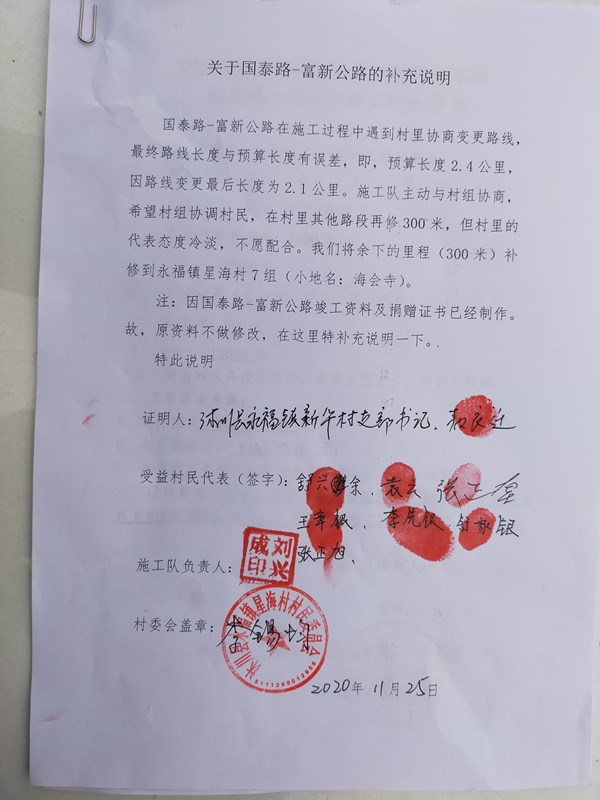 关于国泰路-富新公路的补充说明
国泰路-富新公路在施工过程中遇到村里协商变更路线，
最终路线长度与预算长度有误差，即，预算长度2.4公里，
因路线变更最后长度为2.1公里。施工队主动与村组协商，
希望村组协调村民，在村里其他路段再修300米，但村里的
代表态度冷淡，不愿配合。我们将余下的里程（300米）补
修到永福镇星海村7组（小地名：海会寺）。
注：因国泰路-富新公路竣工资料及捐赠证书已经制作。
故，原资料不做修改，在这里特补充说明一下。.
特此说明
证明人：沐川县永福镇新华村支部书记、
受益村民代表（签字）：舒兴 余、袁云 张正
王幸银、李先银
张正旭、
施工队负责人：刘兴成印
村委会盖章：李锡
沐川县永福镇星海村村民委员会
2020年11月25日